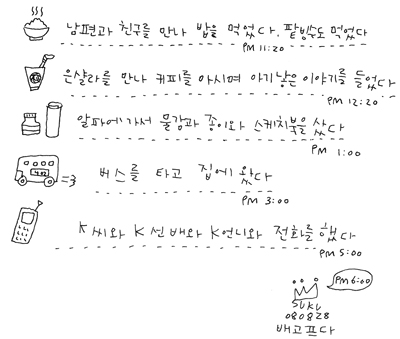 남편과 친구를 만나 밥을 먹었다. 팥빙수도 먹었다
PM 11:20
은샬라를 만나 커피를 마시며 아기낳은 이야기를 들었다
PM 12:20
알파에가서 물감과 종이와 스케치북을 샀다
PM 1:00
버스를 타고 집에 왔다
PM 3:00
K씨와 K선배와 K언니와 전화를 했다
PM 5:00
PM 6:00
SUKU
080828
배고프다